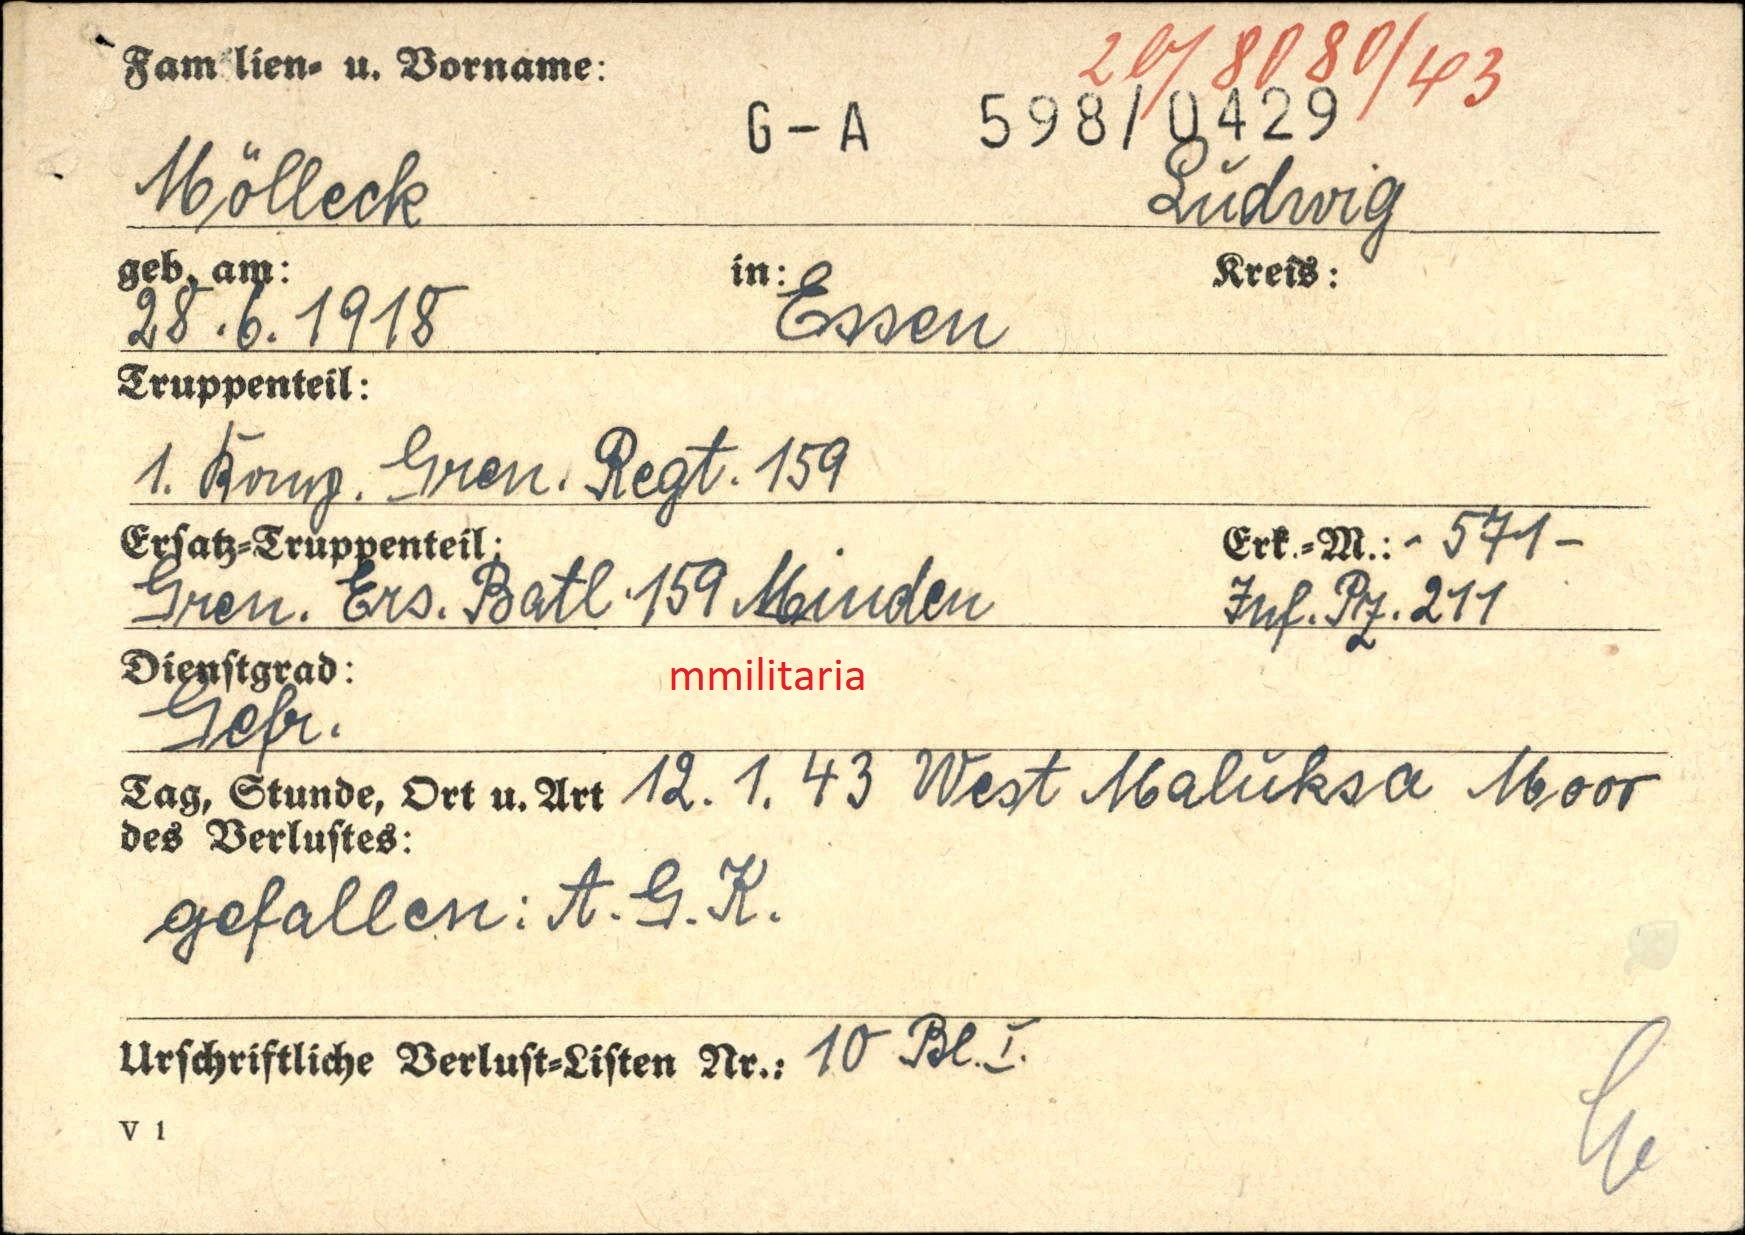 20/8080/43
Familien- u. Vorname:
G-A 598/0429
Mölleck Ludwig
geb. am: in: Kreis:
28.6.1918 Essen
Truppenteil:
1. Komp. Gren. Regt. 159
Ersatz-Truppenteil: Erk.-M.: - 571 -
Gren. Ers. Batl. 159 Minden Inf. Pz. 211
Dienstgrad:
mmilitaria
Gefr.
Tag, Stunde, Ort u. Art 12. 1. 43 West Maluksa Moor
des Verlustes:
gefallen: A. G. K.
Urschriftliche Verlust-Listen Nr.: 10 Bl. I.
V 1